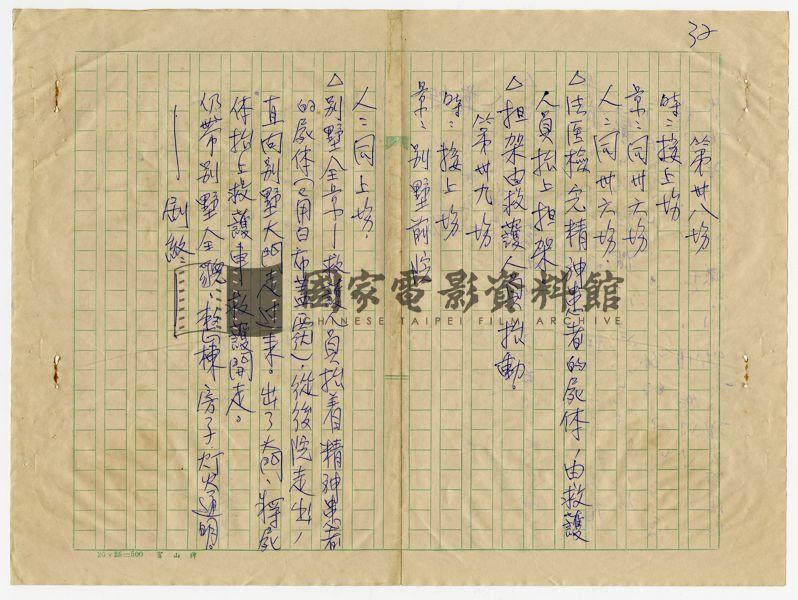 32
第卅八場
時：接上場
景：同卅六場
人：同卅六場
△法医檢完精神患者的屍体，由救護
人員抬上担架
△担架由救護人員抬動。
第卅九場
時：接上場
景：別墅前院
人：同上場
△別墅全景—救護人員抬着精神患者
的屍体（用白布蓋），從後院走出，
直向別墅大門走过来。出了大門，將屍
体抬上救護車，救護開走。
仍帶別墅全貌，整棟房子灯火通明。
—劇終
國家電影資料館
CHINESE TAIPEI FILM ARCHIVE
20×25=500